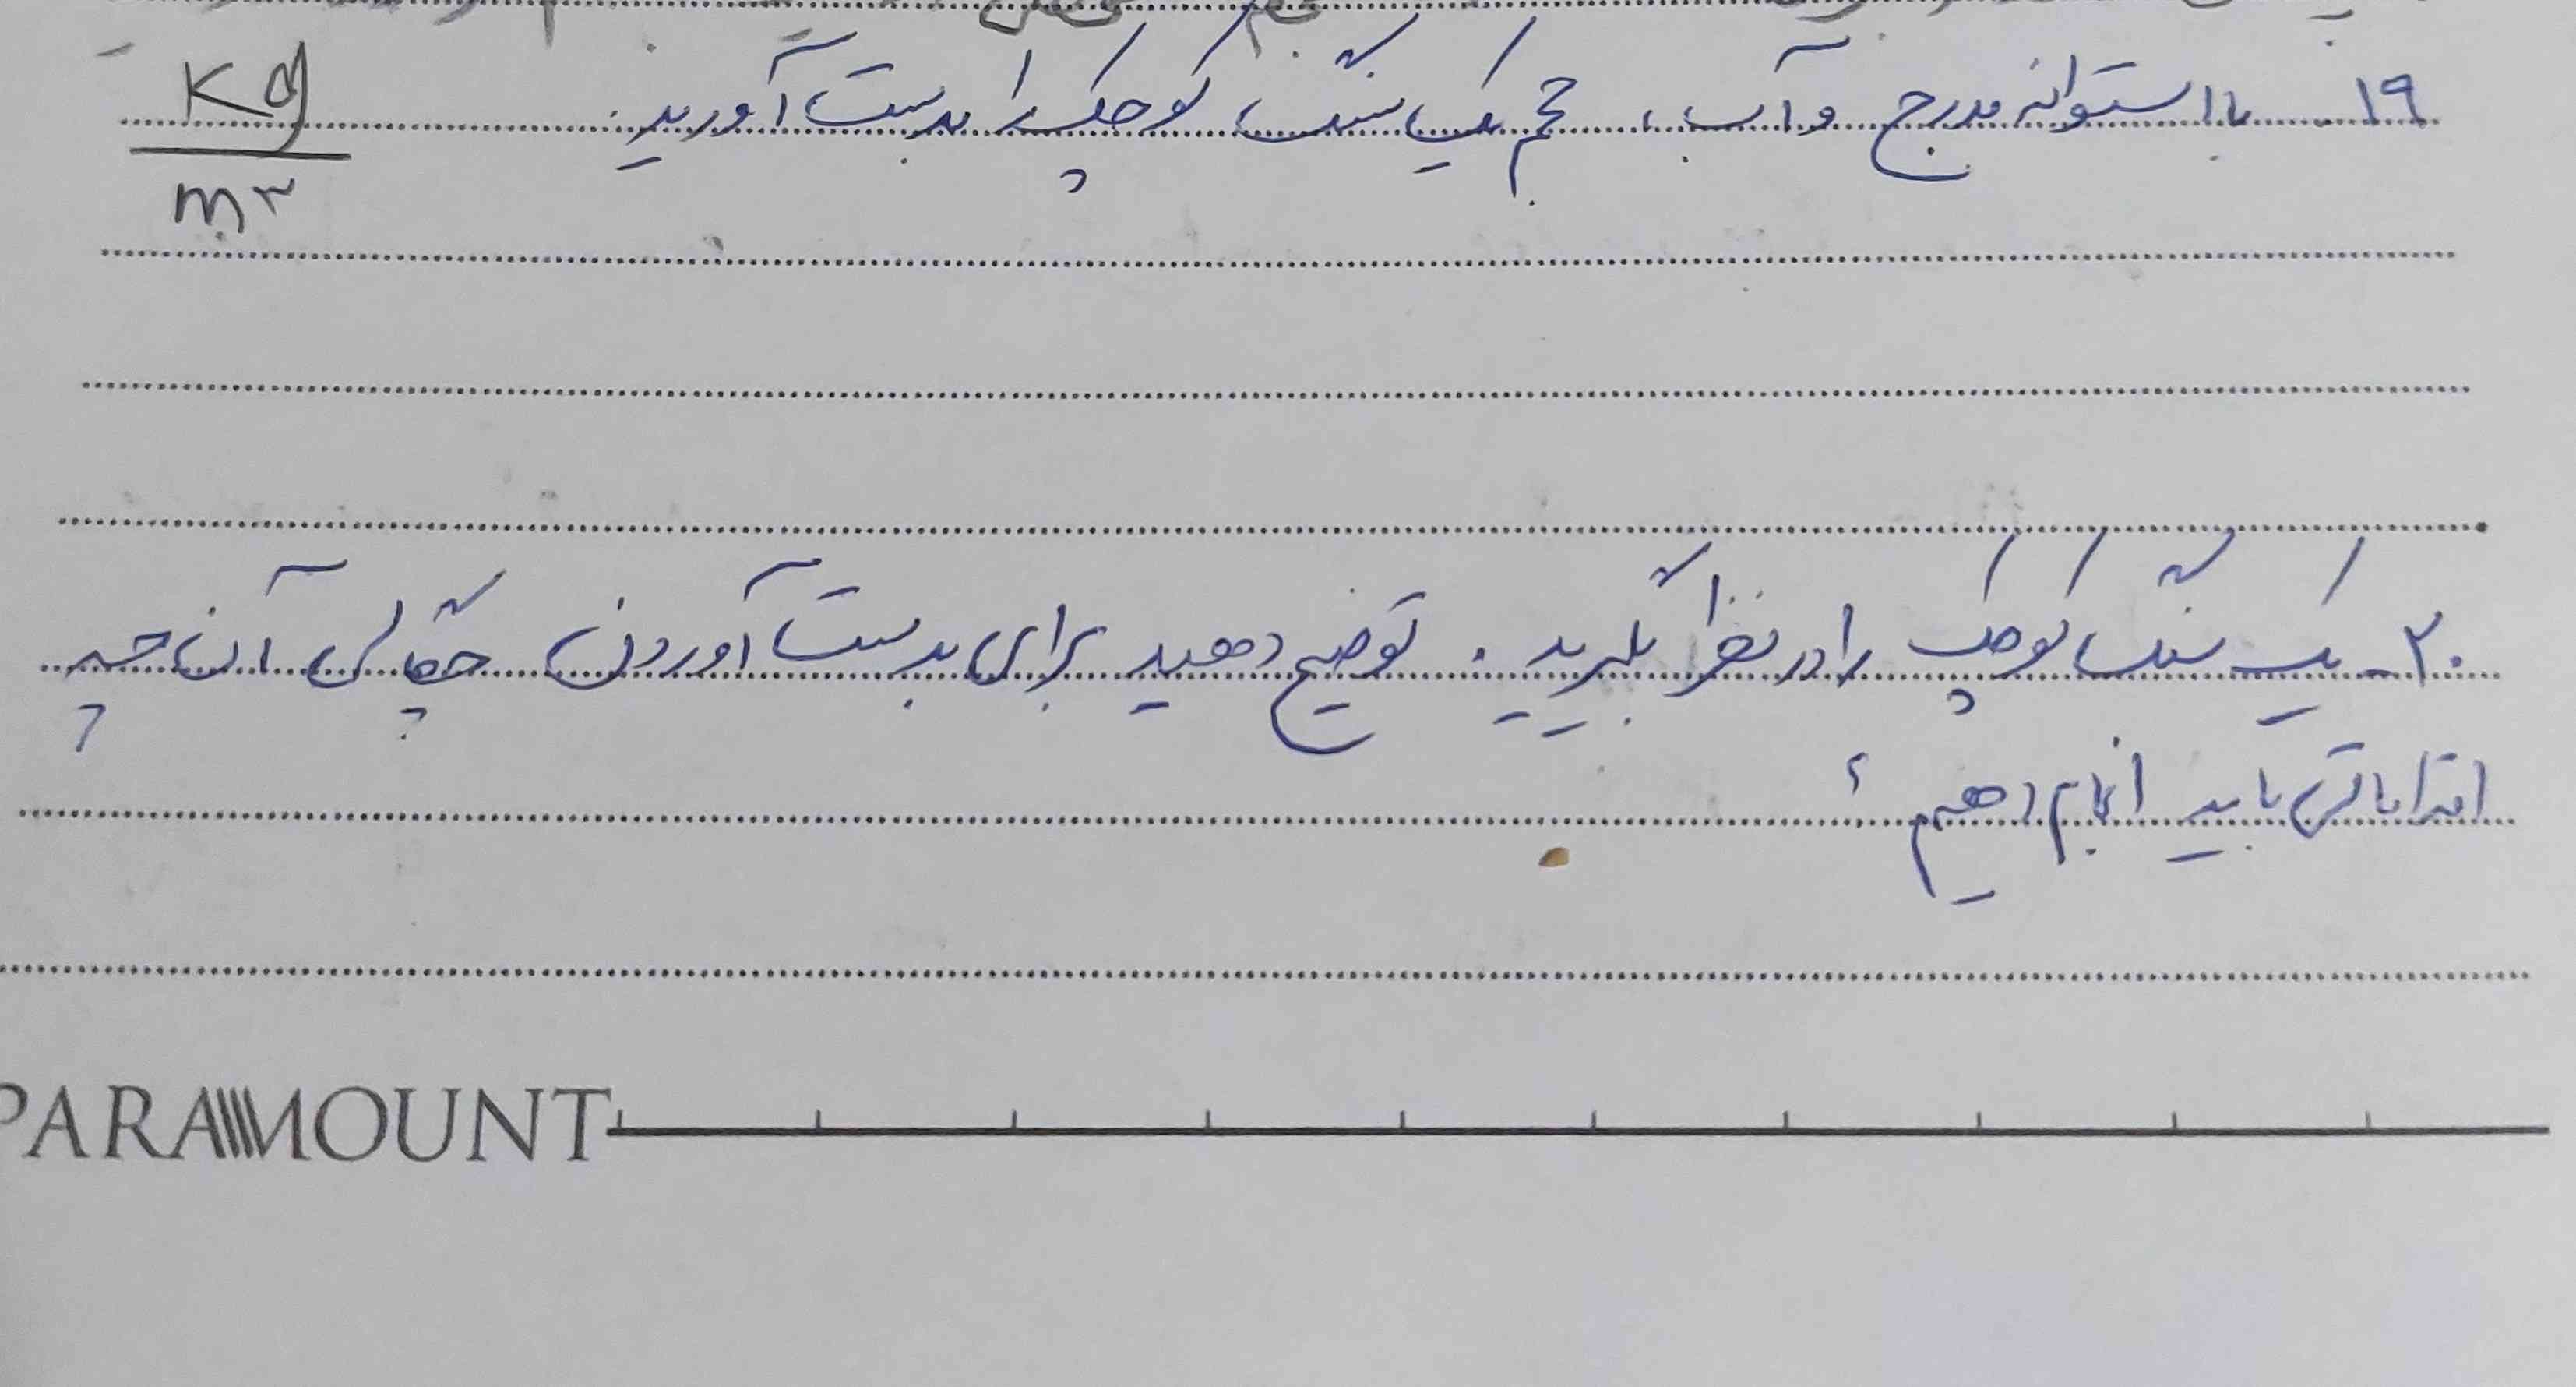 ۱۹_ با استوانه مدرج و آب، حجم یک سنگ کوچک را بدست آورید.
Kg
m۳
۲۰_ یک سنگ کوچک را در نظر بگیرید. توضیح دهید برای بدست آوردن چگالی آن چه
اقداماتی باید انجام دهیم؟
PARAMOUNT